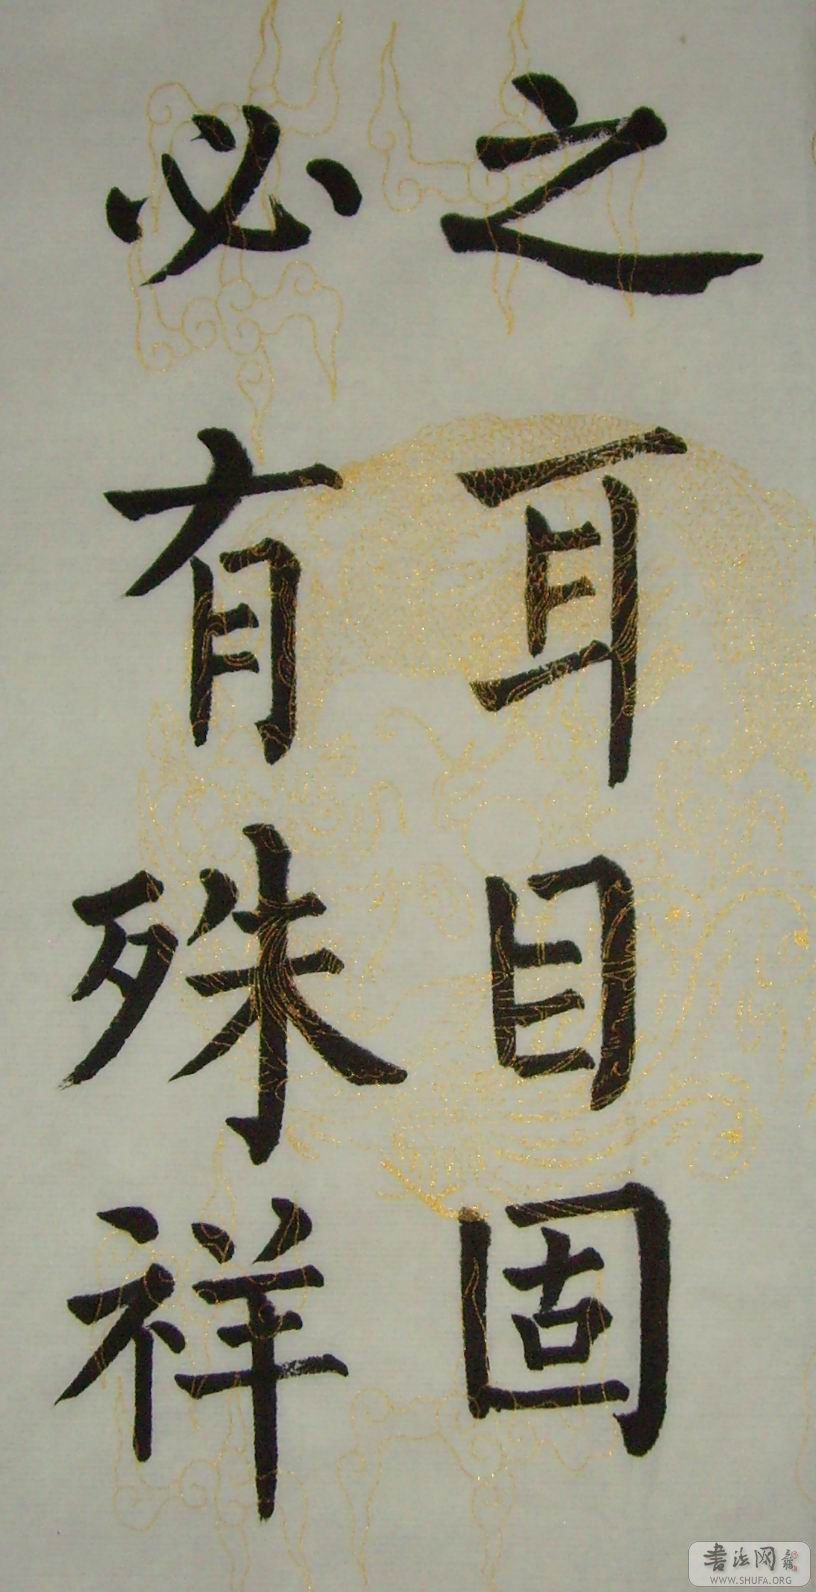 之耳目固
必有殊祥
書法网
WWW.SHUFA.ORG